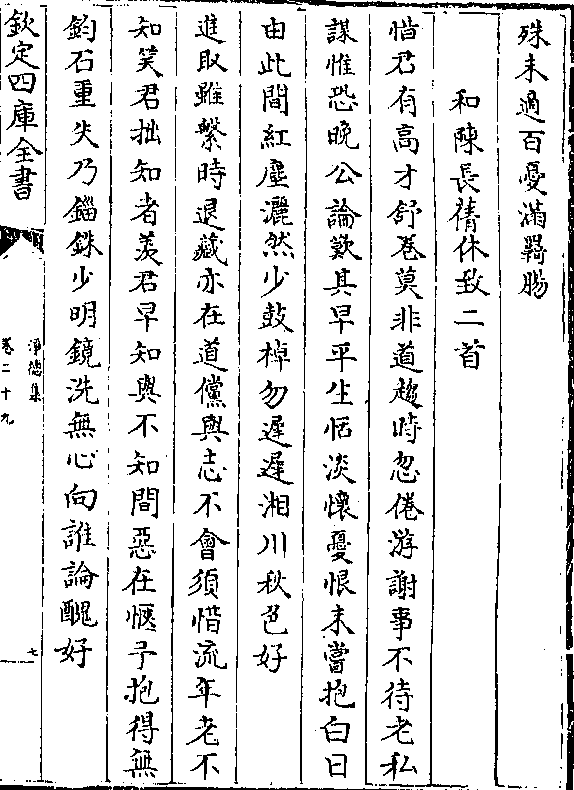 殊未過百憂滿羇腸
和陳長蒨休致二首
惜君有高才舒卷莫非道趨時忽倦游謝事不待老私
謀惟恐晚公論歎其早平生恬淡懷憂恨未嘗抱白日
由此閒紅塵灑然少鼓棹勿遲遲湘川秋色好
進取雖繫時退藏亦在道儻與志不會須惜流年老不
知笑君拙知者羨君早知與不知間惡在愜予抱得無
鈞石重失乃錙銖少明鏡洗無心向誰論醜好
欽定四庫全書
淨德集
卷二十九
七